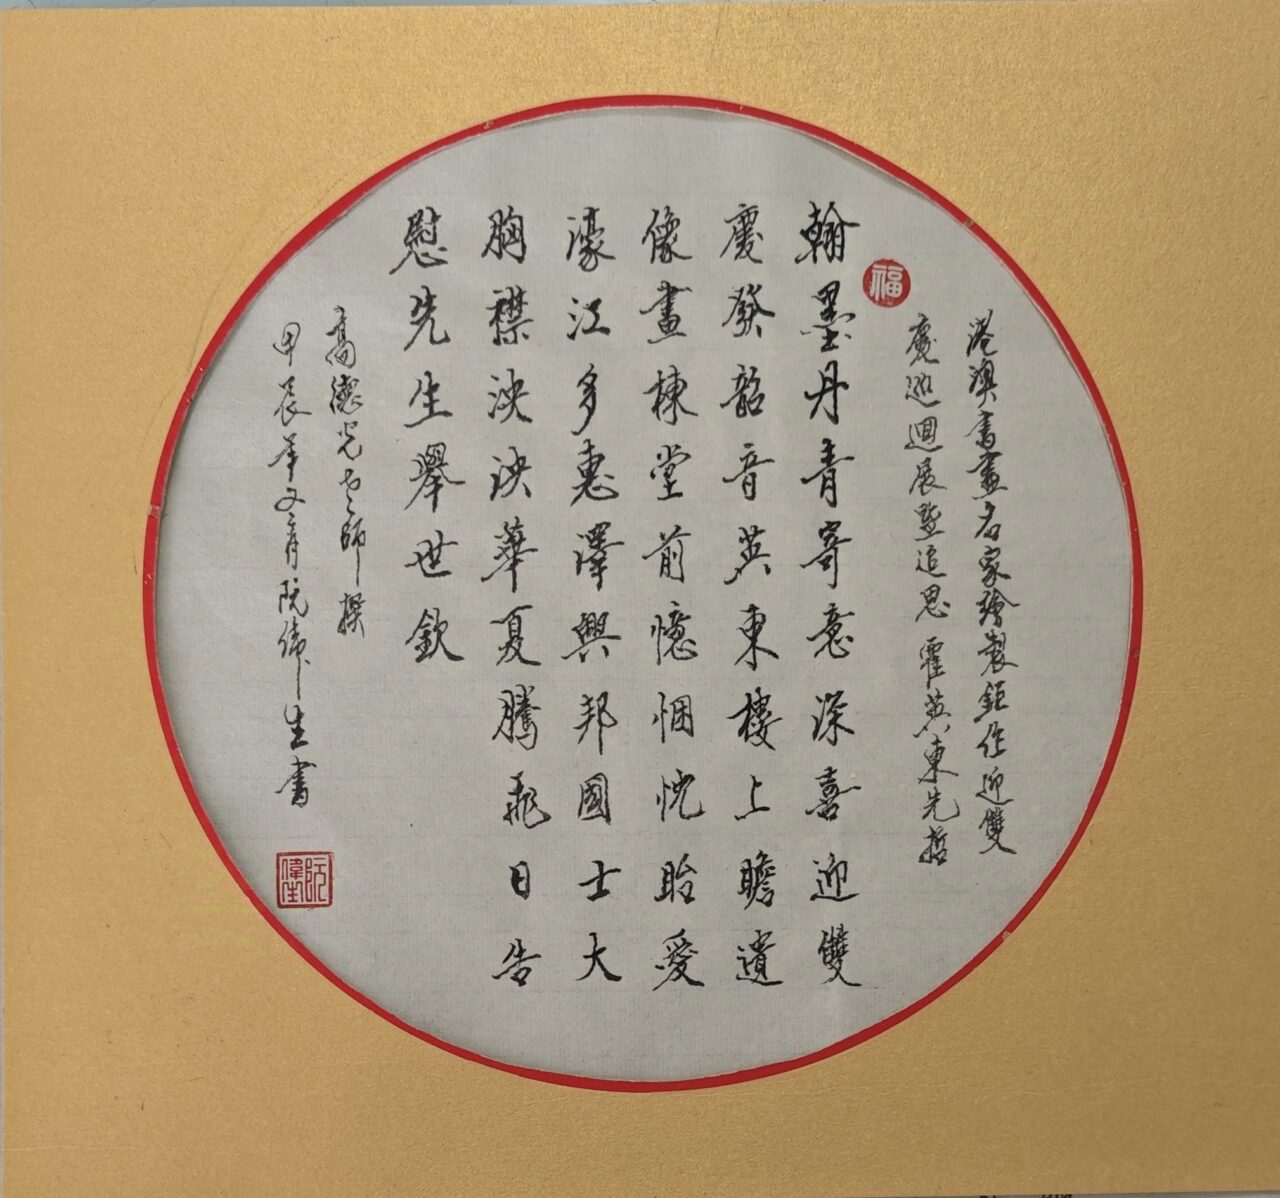 港澳書畫名家繪製鉅作迎雙
慶巡迴展暨追思 霍英東先哲
福
翰墨丹青寄意深喜迎雙
慶發韶音英東樓上瞻遺
像畫棟堂前憶悃忱貽愛
濠江多惠澤興邦國士大
胸襟泱泱華夏騰飛日告
慰先生舉世欽
高德光老師撰
甲辰年又育阮偉生書
阮偉生